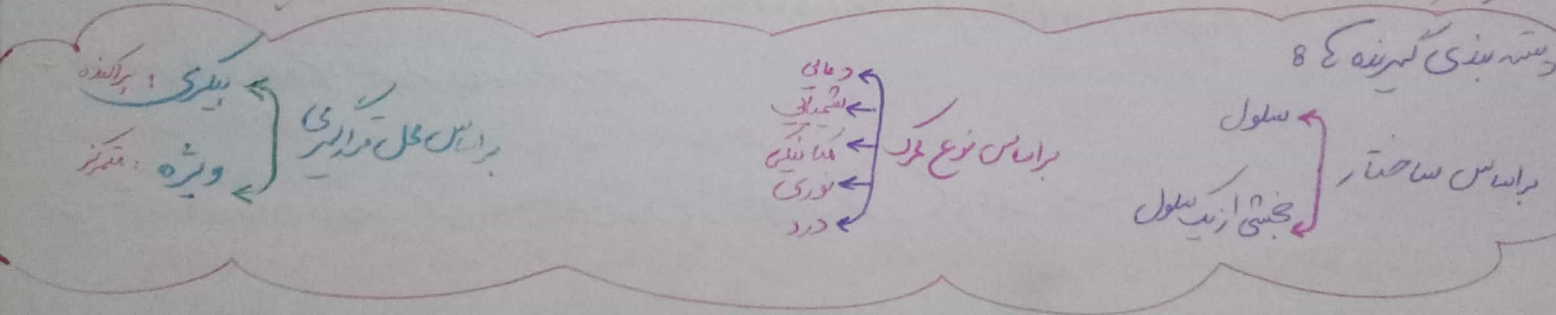 دسته بندی گیرنده ها :
براساس ساختار
سلول
بخشی از یک سلول
براساس نوع محرک
دمایی
شیمیایی
مکانیکی
نوری
درد
براساس محل قرارگیری
پیکری : پراکنده
ویژه : متمرکز